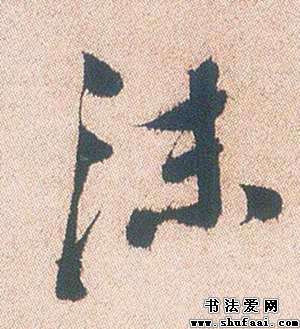 沫
书法爱网
www.shufaai.com